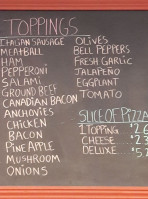 TOPPINGS
ITALIAN SAUSAGE
MEATBALL
HAM
PEPPERONI
SALAMI
GROUND BEEF
CANADIAN BACON
ANCHOVIES
CHICKEN
BACON
PINEAPPLE
MUSHROOM
ONIONS
OLIVES
BELL PEPPERS
FRESH GARLIC
JALAPEÑO
EGGPLANT
TOMATO
SLICE OF PIZZA
1 TOPPING
CHEESE
DELUXE